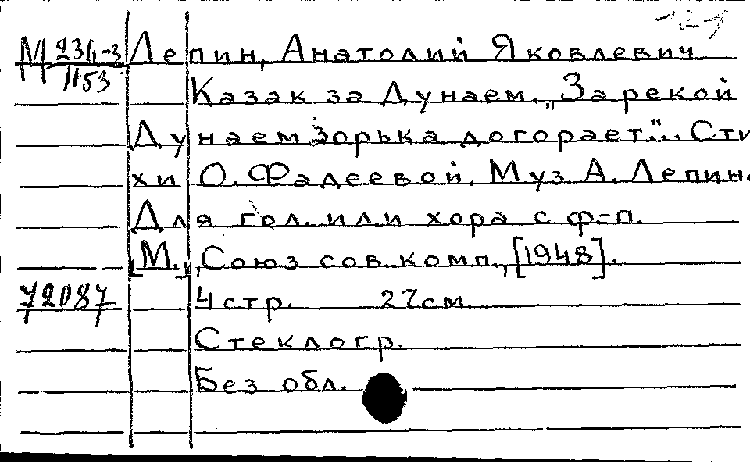 М 231-3 Лепин, Анатолий Яковлевич
1153 Казак за Дунаем. „За рекой
Дунаем зорька догорает."... Сти
хи О. Фадеевой. Муз А. Лепин.
Для гол. или хора с ф-п.
[М.], Союз сов. комп., [1948].
72087 4 стр. 27 см
Стеклогр.
Без обл.